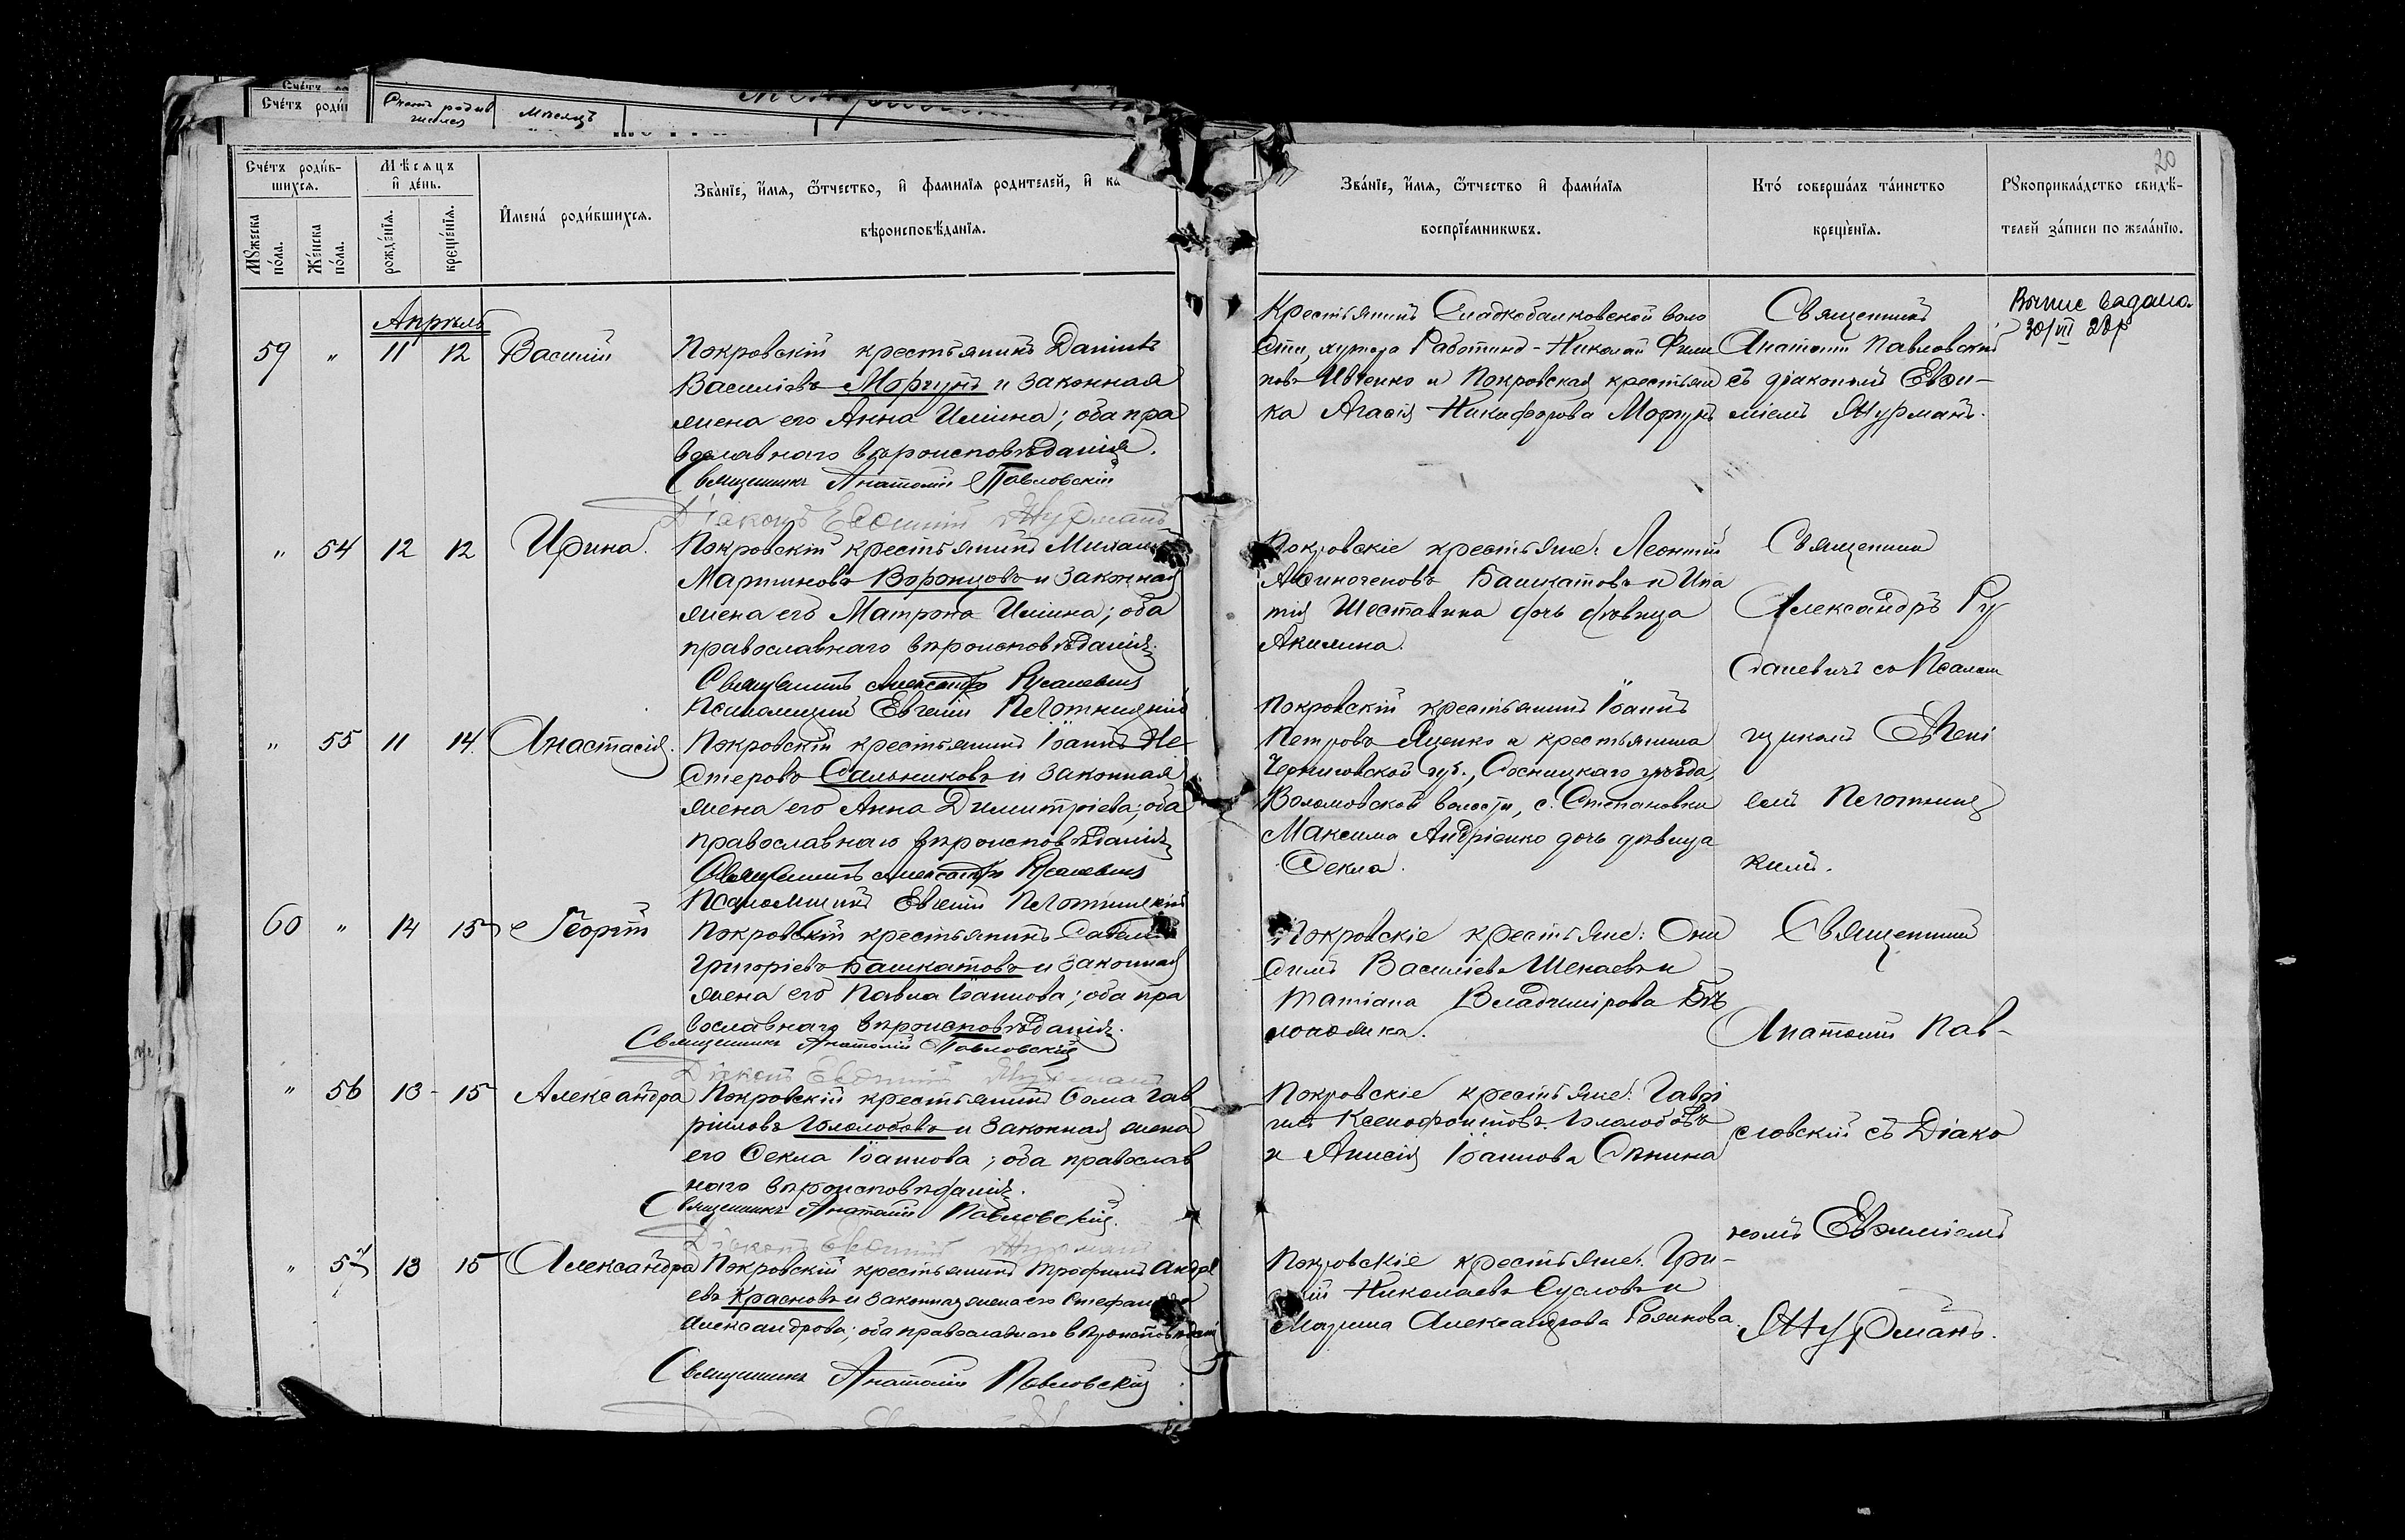 Счетъ родив
Счетъ родив
шихся
Мѣсяцъ
20
Счетъ родив-
шихся.
Мѣсяцъ
и день.
Имена родившихся.
Званіе, имя, отчество, и фамилія родителей, и ка
вѣроисповѣданія.
Мужеска
пола.
Женска
пола.
рожденія.
крещенія.
Званіе, имя, отчество и фамилія
воспріемниковъ.
Кто совершалъ таинство
крещенія.
Рукоприкладство свидѣ-
телей записи по желанію.
Апрѣль
59 " 11 12 Василій
Покровскій крестьянинъ Даніилъ
Васильевъ Моргунъ и законная
жена его Анна Ильина; оба пра
вославнаго вѣроисповѣданія.
Священникъ Анатолій Павловскій
Діаконъ Евѳимій Журманъ
Крестьянинъ Сладкобалковской воло
сти, хутора Работина - Николай Фили
повъ Ивченко и Покровская крестьян
ка Агаѳія Никифорова Моргунъ
Священникъ
Анатолій Павловскій
съ діакономъ Евѳи-
міемъ Журманъ.
выдана
30/VII 22 р
" 54 12 12 Ирина.
Покровскій крестьянинъ Михаилъ
Мартиновъ Воронцовъ и законная
жена его Матрона Ильина; оба
православнаго вѣроисповѣданія.
Священникъ Александръ
Псаломщикъ Евгеній
Покровскіе крестьяне: Леонтій
Аѳиногеновъ Башкатовъ и Ипа
тія Шеставина дочь дѣвица
Акилина.
Священникъ
Александръ Ру
саневичъ со Псалом
щикомъ Евгені
емъ
кимъ.
" 55 11 14 Анастасія.
Покровскій крестьянинъ Іоаннъ Не-
стеровъ Сальниковъ и законная
жена его Анна Димитріева; оба
православнаго вѣроисповѣданія
Священникъ Александръ
Псаломщикъ Евгеній
Покровскій крестьянинъ Іоаннъ
Петровъ Яценко и крестьянина
Черниговской губ., Сосницкаго уѣзда,
волости, с. Степановки
Максима Андріенко дочь дѣвица
Ѳекла.
60 " 14 15 Георгій
Покровскій крестьянинъ Савелій
Григоріевъ Башкатовъ и законная
жена его Павла Іоаннова; оба пра
вославнаго вѣроисповѣданія.
Священникъ Анатолій Павловскій
Діаконъ Евѳимій Журманъ
Покровскіе крестьяне: Они
симъ Васильевъ Шекаевъ и
Татіана Владимірова Бѣ
Священникъ
Анатолій Пав-
ловскій съ Діако
номъ Евѳиміемъ
Журманъ.
" 56 13 - 15 Александра
Покровскій крестьянинъ Ѳома Гав
ріиловъ Гололобовъ и законная жена
его Ѳекла Іоаннова; оба православ
наго вѣроисповѣданія.
Священникъ Анатолій Павловскій.
Діаконъ Евѳимій Журманъ
Покровскіе крестьяне: Гаврі
илъ Ксенофонтовъ Гололобовъ
и Анисія Іоаннова
" 57 13 15 Александра
Покровскій крестьянинъ Трофимъ Андре
евъ Красновъ и законная жена его Стефанида
Александрова; оба православнаго вѣроисповѣданія
Священникъ Анатолій Павловскій
Покровскіе крестьяне: Гри-
горій Николаевъ Сусловъ и
Марина Александрова